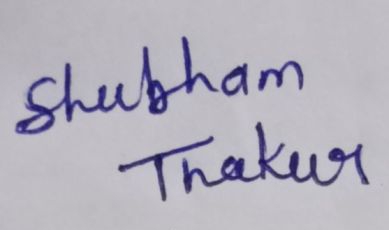 Shubham
Thakur